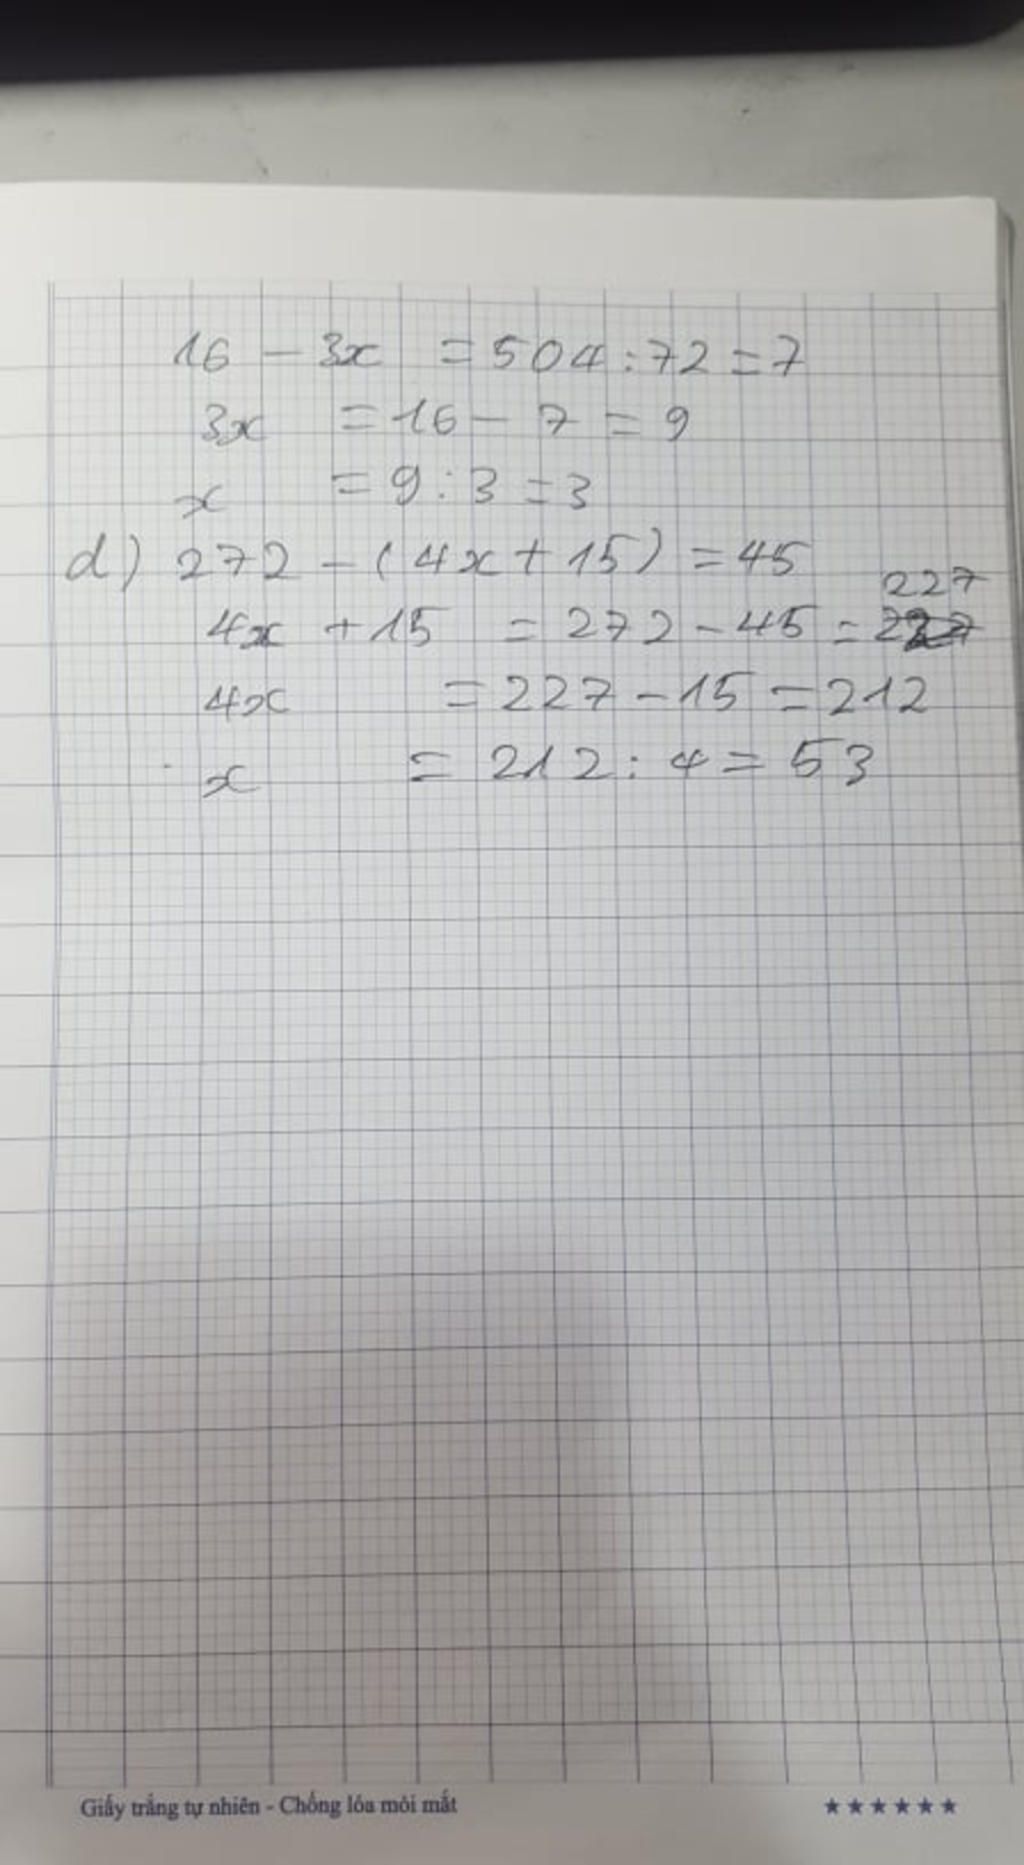 16 - 3x = 504 : 72 = 7
3x = 16 - 7 = 9
x = 9 : 3 = 3
d) 272 - (4x + 15) = 45
227
4x + 15 = 272 - 45 =
4x = 227 - 15 = 212
x = 212 : 4 = 53
Giấy trắng tự nhiên - Chống lóa mỏi mắt ★★★★★★